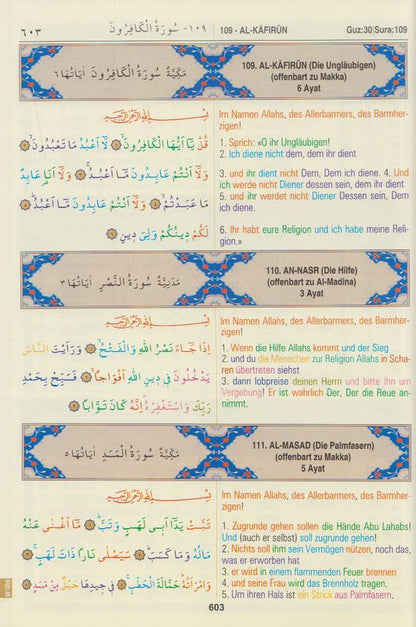 ٦٠٣
١٠٩- سُورَةُ الْكَافِرُونَ
109 - AL-KĀFIRŪN
Guz:30|Sura:109
مَكِّيَّةٌ سُورَةُ الْكَافِرُونَ اٰيَاتُهَا ٦
109. AL-KĀFIRŪN (Die Ungläubigen)
(offenbart zu Makka)
6 Ayat
بِسْمِ اللّٰهِ الرَّحْمٰنِ الرَّحِيمِ
قُلْ يَٓا اَيُّهَا الْكَافِرُونَۙ ﴿١﴾ لَٓا اَعْبُدُ مَا تَعْبُدُونَۙ ﴿٢﴾
وَلَٓا اَنْتُمْ عَابِدُونَ مَٓا اَعْبُدُۚ ﴿٣﴾ وَلَٓا اَنَا۬ عَابِدٌ
مَا عَبَدْتُمْۙ ﴿٤﴾ وَلَٓا اَنْتُمْ عَابِدُونَ مَٓا اَعْبُدُۜ ﴿٥﴾
لَكُمْ دِينُكُمْ وَلِيَ دِينِ ﴿٦﴾
Im Namen Allahs, des Allerbarmers, des Barmher-
zigen!
1. Sprich: «O ihr Ungläubigen!
2. Ich diene nicht dem, dem ihr dient
3. und ihr dient nicht Dem, Dem ich diene. 4. Und
ich werde nicht Diener dessen sein, dem ihr dient
5. und ihr werdet nicht Diener Dessen sein, Dem
ich diene.
6. Ihr habt eure Religion und ich habe meine Reli-
gion.»
مَدَنِيَّةٌ سُورَةُ النَّصْرِ اٰيَاتُهَا ٣
110. AN-NASR (Die Hilfe)
(offenbart zu Al-Madina)
3 Ayat
بِسْمِ اللّٰهِ الرَّحْمٰنِ الرَّحِيمِ
اِذَا جَٓاءَ نَصْرُ اللّٰهِ وَالْفَتْحُۙ ﴿١﴾ وَرَاَيْتَ النَّاسَ
يَدْخُلُونَ فِي دِينِ اللّٰهِ اَفْوَاجًاۙ ﴿٢﴾ فَسَبِّحْ بِحَمْدِ
رَبِّكَ وَاسْتَغْفِرْهُۜ اِنَّهُ كَانَ تَوَّابًا ﴿٣﴾
Im Namen Allahs, des Allerbarmers, des Barmher-
zigen!
1. Wenn die Hilfe Allahs kommt und der Sieg
2. und du die Menschen zur Religion Allahs in Scha-
ren übertreten siehst
3. dann lobpreise deinen Herrn und bitte Ihn um
Vergebung! Er ist wahrlich Der, Der die Reue an-
nimmt.
مَكِّيَّةٌ سُورَةُ الْمَسَدِ اٰيَاتُهَا ٥
111. AL-MASAD (Die Palmfasern)
(offenbart zu Makka)
5 Ayat
بِسْمِ اللّٰهِ الرَّحْمٰنِ الرَّحِيمِ
تَبَّتْ يَدَٓا اَبِي لَهَبٍ وَتَبَّۜ ﴿١﴾ مَٓا اَغْنٰى عَنْهُ
مَالُهُ وَمَا كَسَبَۜ ﴿٢﴾ سَيَصْلٰى نَارًا ذَاتَ لَهَبٍۚ ﴿٣﴾
وَامْرَاَتُهُۜ حَمَّالَةَ الْحَطَبِۚ ﴿٤﴾ فِي جِيدِهَا حَبْلٌ مِنْ مَسَدٍ ﴿٥﴾
Im Namen Allahs, des Allerbarmers, des Barmher-
zigen!
1. Zugrunde gehen sollen die Hände Abu Lahabs!
Und (auch er selbst) soll zugrunde gehen!
2. Nichts soll ihm sein Vermögen nützen, noch das,
was er erworben hat
3. er wird in einem flammenden Feuer brennen
4. und seine Frau wird das Brennholz tragen.
5. Um ihren Hals ist ein Strick aus Palmfasern.
603